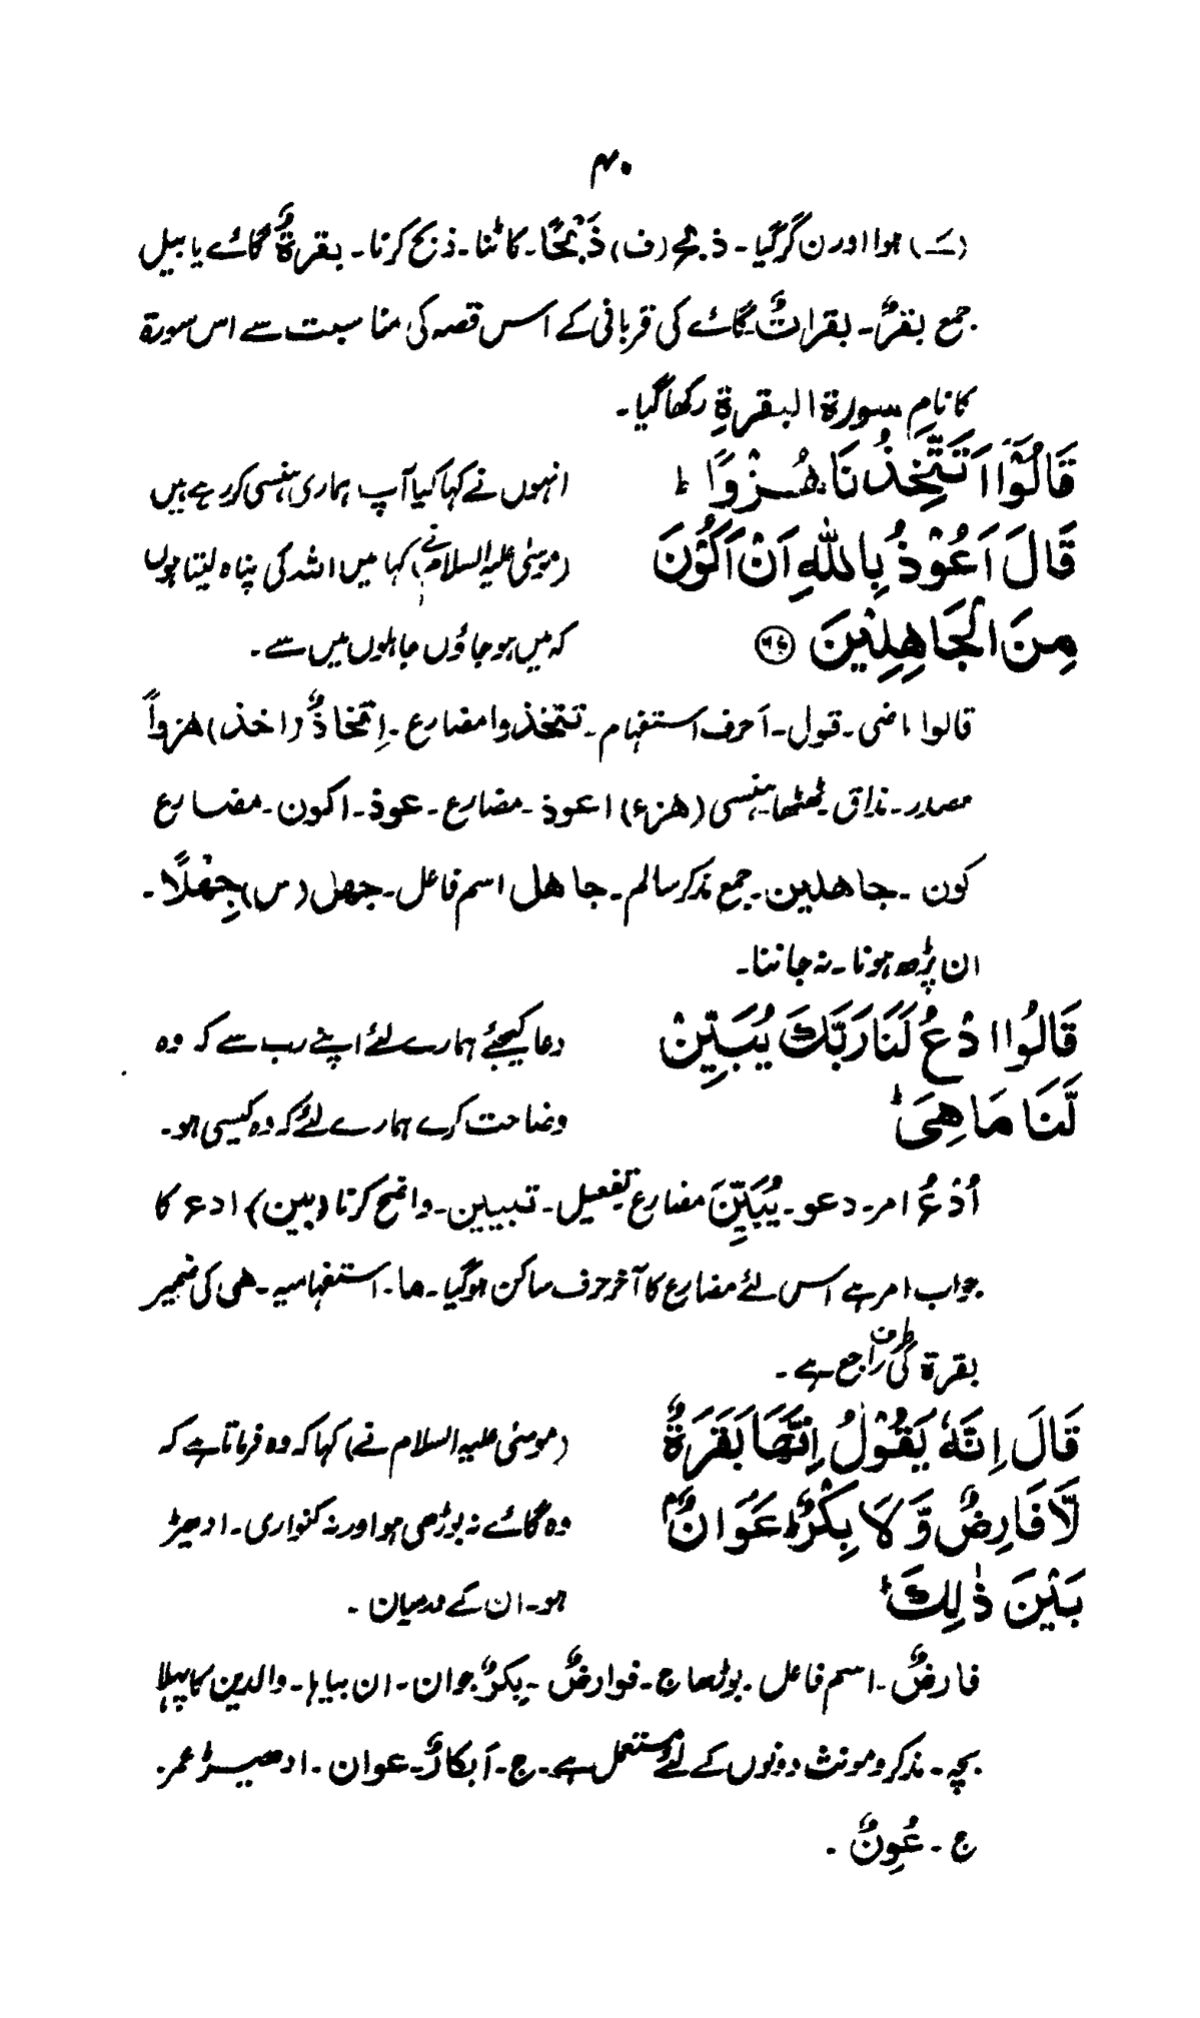 ۴۰
(ـَـ) ہوا اور ن گر گیا ۔ ذبح (ف) ذَبْحًا ۔ کاٹنا ۔ ذبح کرنا ۔ بقرۃٌ گائے یا بیل
جمع بقرٌ ۔ بقراتٌ گائے کی قربانی کے اس قصہ کی مناسبت سے اس سورۃ
کا نام سورۃ البقرۃِ رکھا گیا ۔
قَالُوْٓا اَتَتَّخِذُنَا هُزُوًا ؕ انہوں نے کہا کیا آپ ہماری ہنسی کر رہے ہیں
قَالَ اَعُوْذُ بِاللّٰهِ اَنْ اَكُوْنَ (موسیٰ علیہ السلام نے) کہا میں اللہ کی پناہ لیتا ہوں
مِنَ الْجَاهِلِيْنَ ﴿۶۷﴾ کہ میں ہو جاؤں جاہلوں میں سے ۔
قالوا ماضی ۔ قول ۔ اَ حرف استفہام ۔ تتخذوا مضارع ۔ اِتخاذٌ (اخذ) ھزواً
مصدر ۔ مذاق ۔ ٹھٹھا ہنسی (ھزء) اعوذ ۔ مضارع ۔ عوذ ۔ اکون ۔ مضارع
کون ۔ جاھلین ۔ جمع مذکر سالم ۔ جاھل اسم فاعل ۔ جھل (س) جِھْلًا ۔
ان پڑھ ہونا ۔ نہ جاننا ۔
قَالُوا ادْعُ لَنَا رَبَّكَ يُبَيِّنْ دعا کیجئے ہمارے لئے اپنے رب سے کہ وہ
لَّنَا مَا هِيَ ؕ وضاحت کرے ہمارے لئے کہ وہ کیسی ہو ۔
اُدْعُ امر ۔ دعو ۔ يُبَيِّنَ مضارع تفعیل ۔ تبیین ۔ واضح کرنا (بین) ادع کا
جواب امر ہے اس لئے مضارع کا آخر حرف ساکن ہو گیا ۔ ما ۔ استفہامیہ ۔ ھی کی ضمیر
بقرۃ کی طرف راجع ہے ۔
قَالَ اِنَّهٗ يَقُوْلُ اِنَّهَا بَقَرَةٌ (موسیٰ علیہ السلام نے) کہا کہ وہ فرماتا ہے کہ
لَّا فَارِضٌ وَّلَا بِكْرٌ ؕ عَوَانٌۢ وہ گائے نہ بوڑھی ہو اور نہ کنواری ۔ ادھیڑ
بَيْنَ ذٰلِكَ ؕ ہو ۔ ان کے درمیان ۔
فارضٌ ۔ اسم فاعل ۔ بوڑھا ج ۔ فوارضٌ ۔ بِکرٌ جوان ۔ ان بیاہا ۔ والدین کا پہلا
بچہ ۔ مذکر و مونث دونوں کے لئے مستعمل ہے ۔ ج ۔ اَبکارٌ ۔ عوان ۔ ادھیڑ عمر ۔
ج ۔ عُوِنٌ ۔